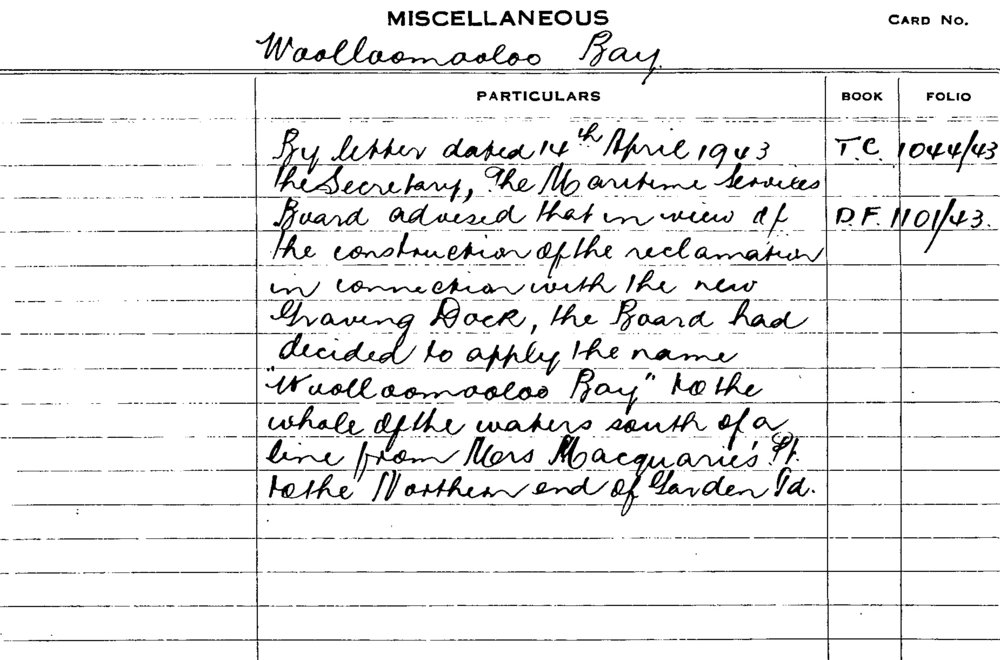 MISCELLANEOUS CARD NO.
Woolloomooloo Bay.
PARTICULARS BOOK FOLIO
By letter dated 14th April 1943 T.C. 1044/43
the Secretary, The Maritime Services
Board advised that in view of D.F. 1101/43.
the construction of the reclamation
in connection with the new
Graving Dock, the Board had
decided to apply the name
"Woolloomooloo Bay" to the
whole of the waters south of a
line from Mrs Macquarie's Pt.
to the Northern end of Garden Id.